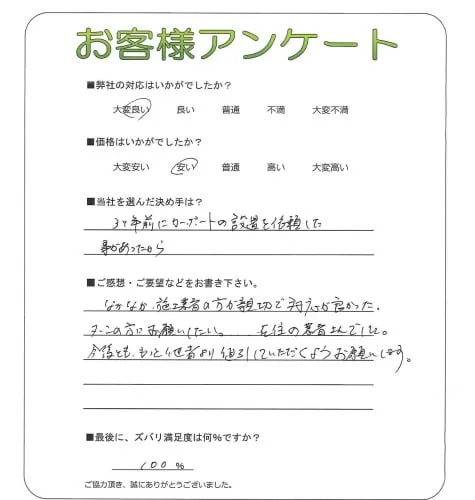 お客様アンケート
■弊社の対応はいかがでしたか？
大変良い 良い 普通 不満 大変不満
■価格はいかがでしたか？
大変安い 安い 普通 高い 大変高い
■当社を選んだ決め手は？
3ヶ年前にカーポートの設置を依頼した
事があったから
■ご感想・ご要望などをお書き下さい。
なかなか、施工業者の方が親切で対応が良かった。
の方にお願いしたい。 在住の業者さんでした。
今後とも、もっと他者より値引していただくようお願いします。
■最後に、ズバリ満足度は何%ですか？
100%
ご協力頂き、誠にありがとうございました。